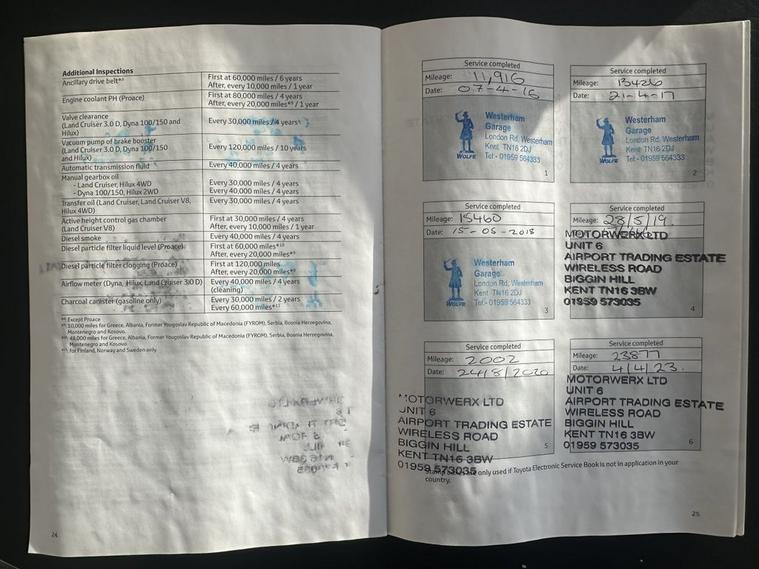 Additional Inspections
Ancillary drive belt*⁶ First at 60,000 miles / 6 years
After, every 10,000 miles / 1 year
Engine coolant PH (Proace) First at 80,000 miles / 4 years
After, every 20,000 miles*⁹ / 1 year
Valve clearance
(Land Cruiser 3.0 D, Dyna 100/150 and
Hilux) Every 30,000 miles / 4 years
Vacuum pump of brake booster
(Land Cruiser 3.0 D, Dyna 100/150
and Hilux) Every 120,000 miles / 10 years
Automatic transmission fluid Every 40,000 miles / 4 years
Manual gearbox oil
- Land Cruiser, Hilux 4WD Every 30,000 miles / 4 years
- Dyna 100/150, Hilux 2WD Every 40,000 miles / 4 years
Transfer oil (Land Cruiser, Land Cruiser V8,
Hilux 4WD) Every 30,000 miles / 4 years
Active height control gas chamber
(Land Cruiser V8) First at 30,000 miles / 4 years
After, every 10,000 miles / 1 year
Diesel smoke Every 40,000 miles / 4 years
Diesel particle filter liquid level (Proace) First at 60,000 miles*¹⁰
After, every 20,000 miles*⁹
Diesel particle filter clogging (Proace) First at 120,000 miles
After, every 20,000 miles*⁹
Airflow meter (Dyna, Hilux, Land Cruiser 3.0 D) Every 40,000 miles / 4 years
(cleaning)
Charcoal canister (gasoline only) Every 30,000 miles / 2 years
Every 60,000 miles*¹¹
Except Proace
10,000 miles for Greece, Albania, Former Yougoslav Republic of Macedonia (FYROM), Serbia, Bosnia Herzegovina,
Montenegro and Kosovo
48,000 miles for Greece, Albania, Former Yougoslav Republic of Macedonia (FYROM), Serbia, Bosnia Herzegovina,
Montenegro and Kosovo
for Finland, Norway and Sweden only
24
Service completed
Mileage: 11,916
Date: 07-4-16
Westerham
Garage
London Rd, Westerham
Kent TN16 2DJ
Tel:- 01959 564333
WOLFE
1
Service completed
Mileage: 13426
Date: 21-4-17
Westerham
Garage
London Rd, Westerham
Kent TN16 2DJ
Tel:- 01959 564333
WOLFE
2
Service completed
Mileage: 15460
Date: 15-05-2018
Westerham
Garage
London Rd, Westerham
Kent TN16 2DJ
Tel:- 01959 564333
WOLFE
3
Service completed
Mileage: 28/5/19
Date:
MOTORWERX LTD
UNIT 6
AIRPORT TRADING ESTATE
WIRELESS ROAD
BIGGIN HILL
KENT TN16 3BW
01959 573035
4
Service completed
Mileage: 2002
Date: 24/8/2020
MOTORWERX LTD
UNIT 6
AIRPORT TRADING ESTATE
WIRELESS ROAD
BIGGIN HILL
KENT TN16 3BW
01959 573035
5
Service completed
Mileage: 23877
Date: 4/4/23
MOTORWERX LTD
UNIT 6
AIRPORT TRADING ESTATE
WIRELESS ROAD
BIGGIN HILL
KENT TN16 3BW
01959 573035
6
only used if Toyota Electronic Service Book is not in application in your
country.
25